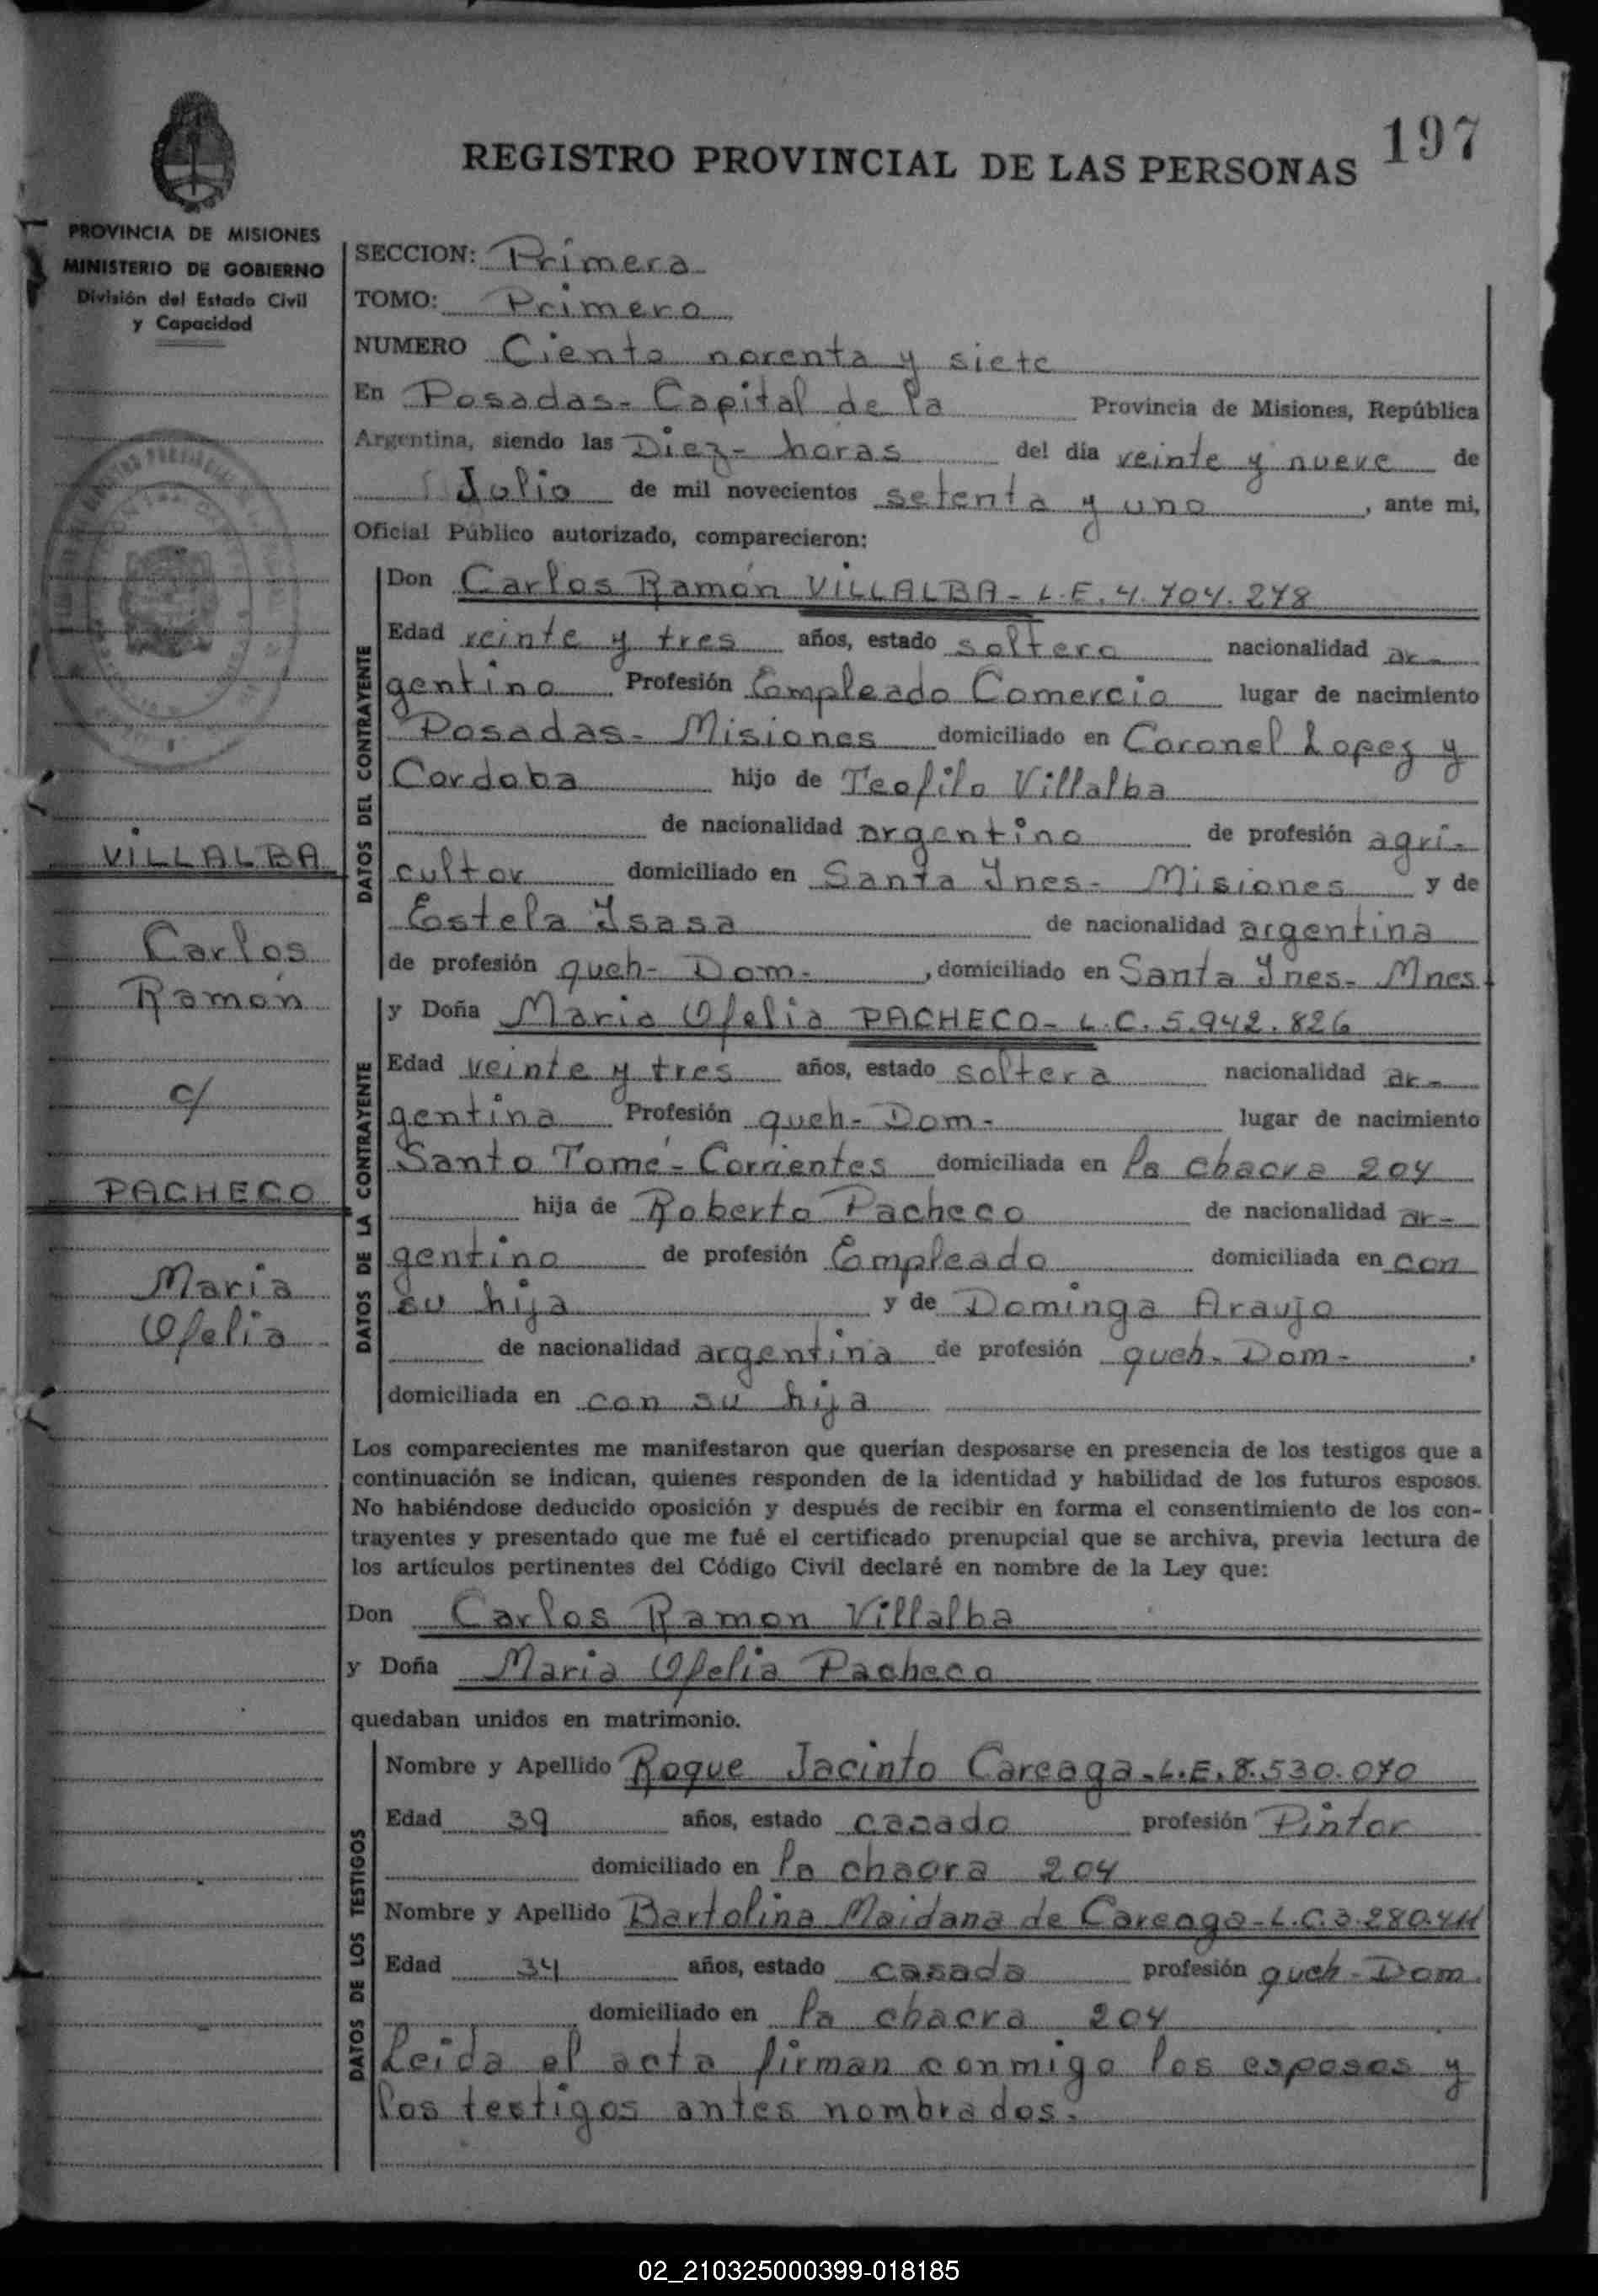 197
REGISTRO PROVINCIAL DE LAS PERSONAS
PROVINCIA DE MISIONES
MINISTERIO DE GOBIERNO
División del Estado Civil
y Capacidad
VILLALBA
Carlos
Ramón
c/
PACHECO
Maria
Ofelia
SECCION: Primera
TOMO: Primero
NUMERO Ciento noventa y siete
En Posadas- Capital de la Provincia de Misiones, República
Argentina, siendo las Diez- horas del día veinte y nueve de
Julio de mil novecientos setenta y uno, ante mi,
Oficial Público autorizado, comparecieron:
DATOS DEL CONTRAYENTE
Don Carlos Ramón VILLALBA- L.E. 4.704.278
Edad veinte y tres años, estado soltero nacionalidad ar-
gentino Profesión Empleado Comercio lugar de nacimiento
Posadas- Misiones domiciliado en Coronel Lopez y
Cordoba hijo de Teofilo Villalba
de nacionalidad argentino de profesión agri-
cultor domiciliado en Santa Ines- Misiones y de
Estela Isasa de nacionalidad argentina
de profesión queh- Dom-, domiciliado en Santa Ines- Mnes
DATOS DE LA CONTRAYENTE
y Doña Maria Ofelia PACHECO- L.C. 5.942.826
Edad veinte y tres años, estado soltera nacionalidad ar-
gentina Profesión queh- Dom- lugar de nacimiento
Santo Tomé- Corrientes domiciliada en la chacra 204
hija de Roberto Pacheco de nacionalidad ar-
gentino de profesión Empleado domiciliada en con
su hija y de Dominga Araujo
de nacionalidad argentina de profesión queh- Dom-,
domiciliada en con su hija
Los comparecientes me manifestaron que querían desposarse en presencia de los testigos que a
continuación se indican, quienes responden de la identidad y habilidad de los futuros esposos.
No habiéndose deducido oposición y después de recibir en forma el consentimiento de los con-
trayentes y presentado que me fué el certificado prenupcial que se archiva, previa lectura de
los artículos pertinentes del Código Civil declaré en nombre de la Ley que:
Don Carlos Ramon Villalba
y Doña Maria Ofelia Pacheco
quedaban unidos en matrimonio.
DATOS DE LOS TESTIGOS
Nombre y Apellido Roque Jacinto Careaga- L.E. 8.530.070
Edad 39 años, estado casado profesión Pintor
domiciliado en la chacra 204
Nombre y Apellido Bartolina Maidana de Careaga- L.C. 3.280.411
Edad 34 años, estado casada profesión queh- Dom.
domiciliado en la chacra 204
Leida el acta firman conmigo los esposos y
los testigos antes nombrados.
02_210325000399-018185